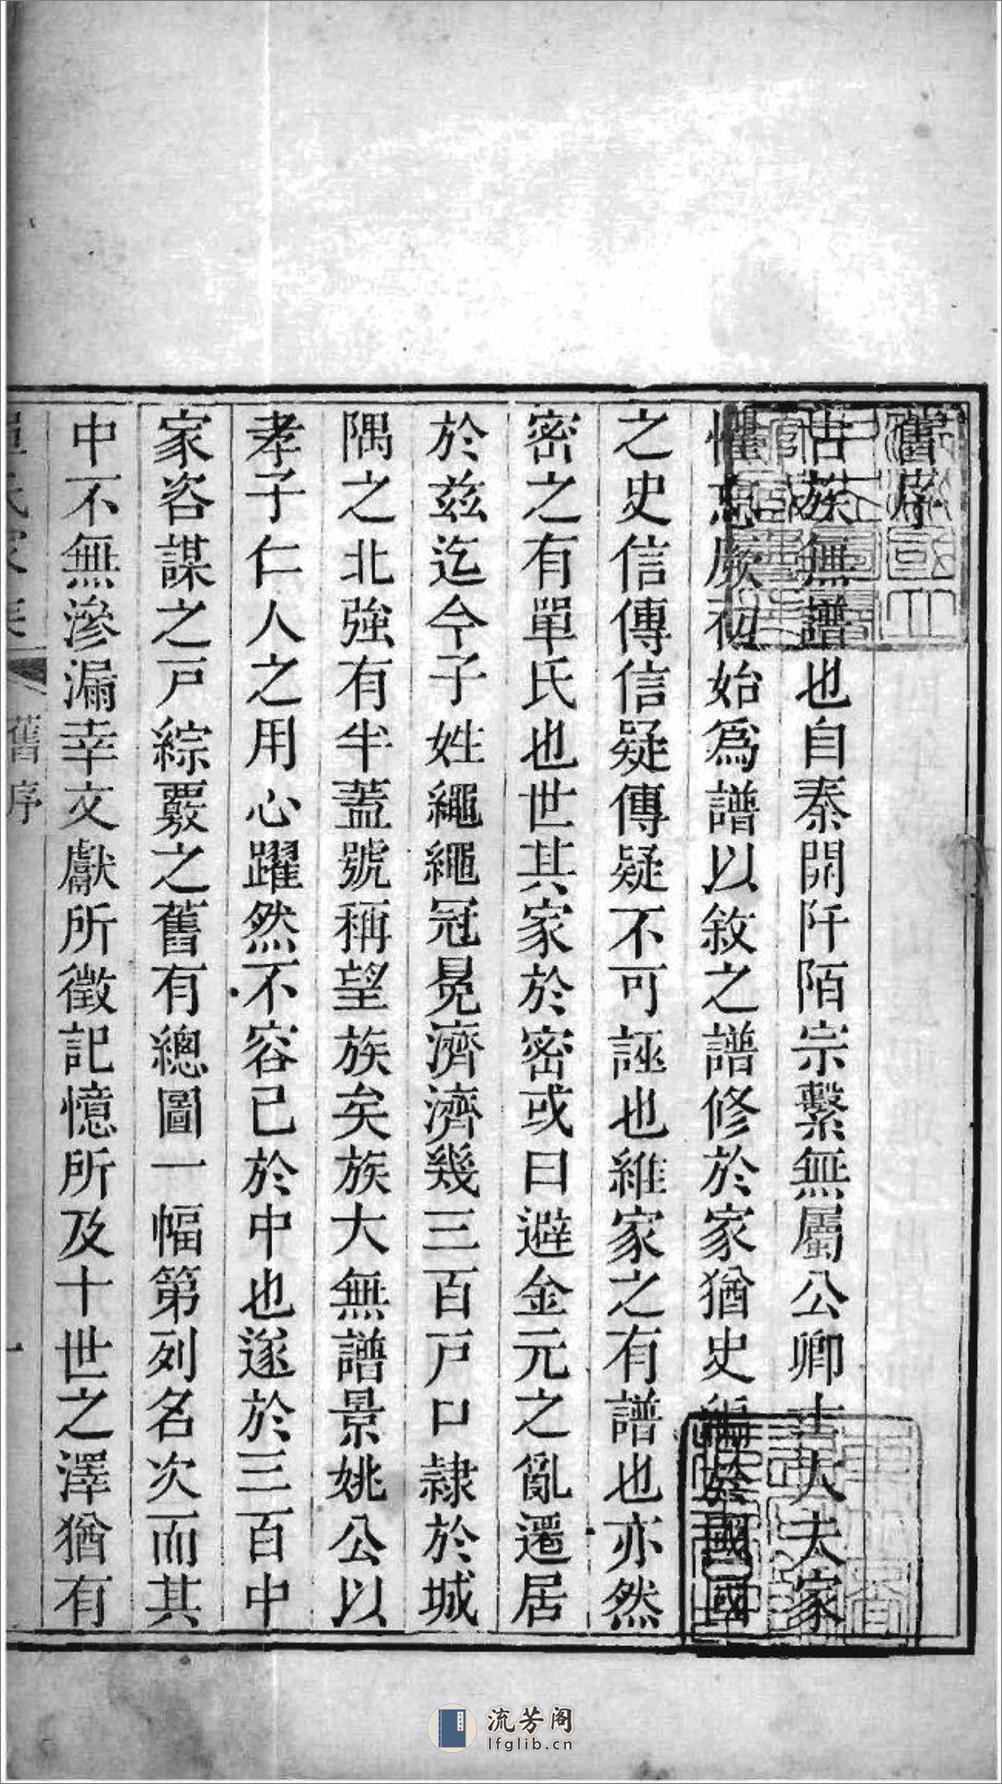 舊序
古族無譜也自秦開阡陌宗繫無屬公卿士大夫家
懼忘厥初始爲譜以敘之譜修於家猶史編於國國
之史信傳信疑傳疑不可誣也維家之有譜也亦然
密之有單氏也世其家於密或曰避金元之亂遷居
於兹迄今子姓繩繩冠冕濟濟幾三百戸口隷於城
隅之北強有半蓋號稱望族矣族大無譜景姚公以
孝子仁人之用心躍然不容已於中也遂於三百中
家咨謀之戸綜覈之舊有總圖一幅第列名次而其
中不無滲漏幸文獻所徵記憶所及十世之澤猶有
單氏家 舊序 一
流芳阁
lfglib.cn